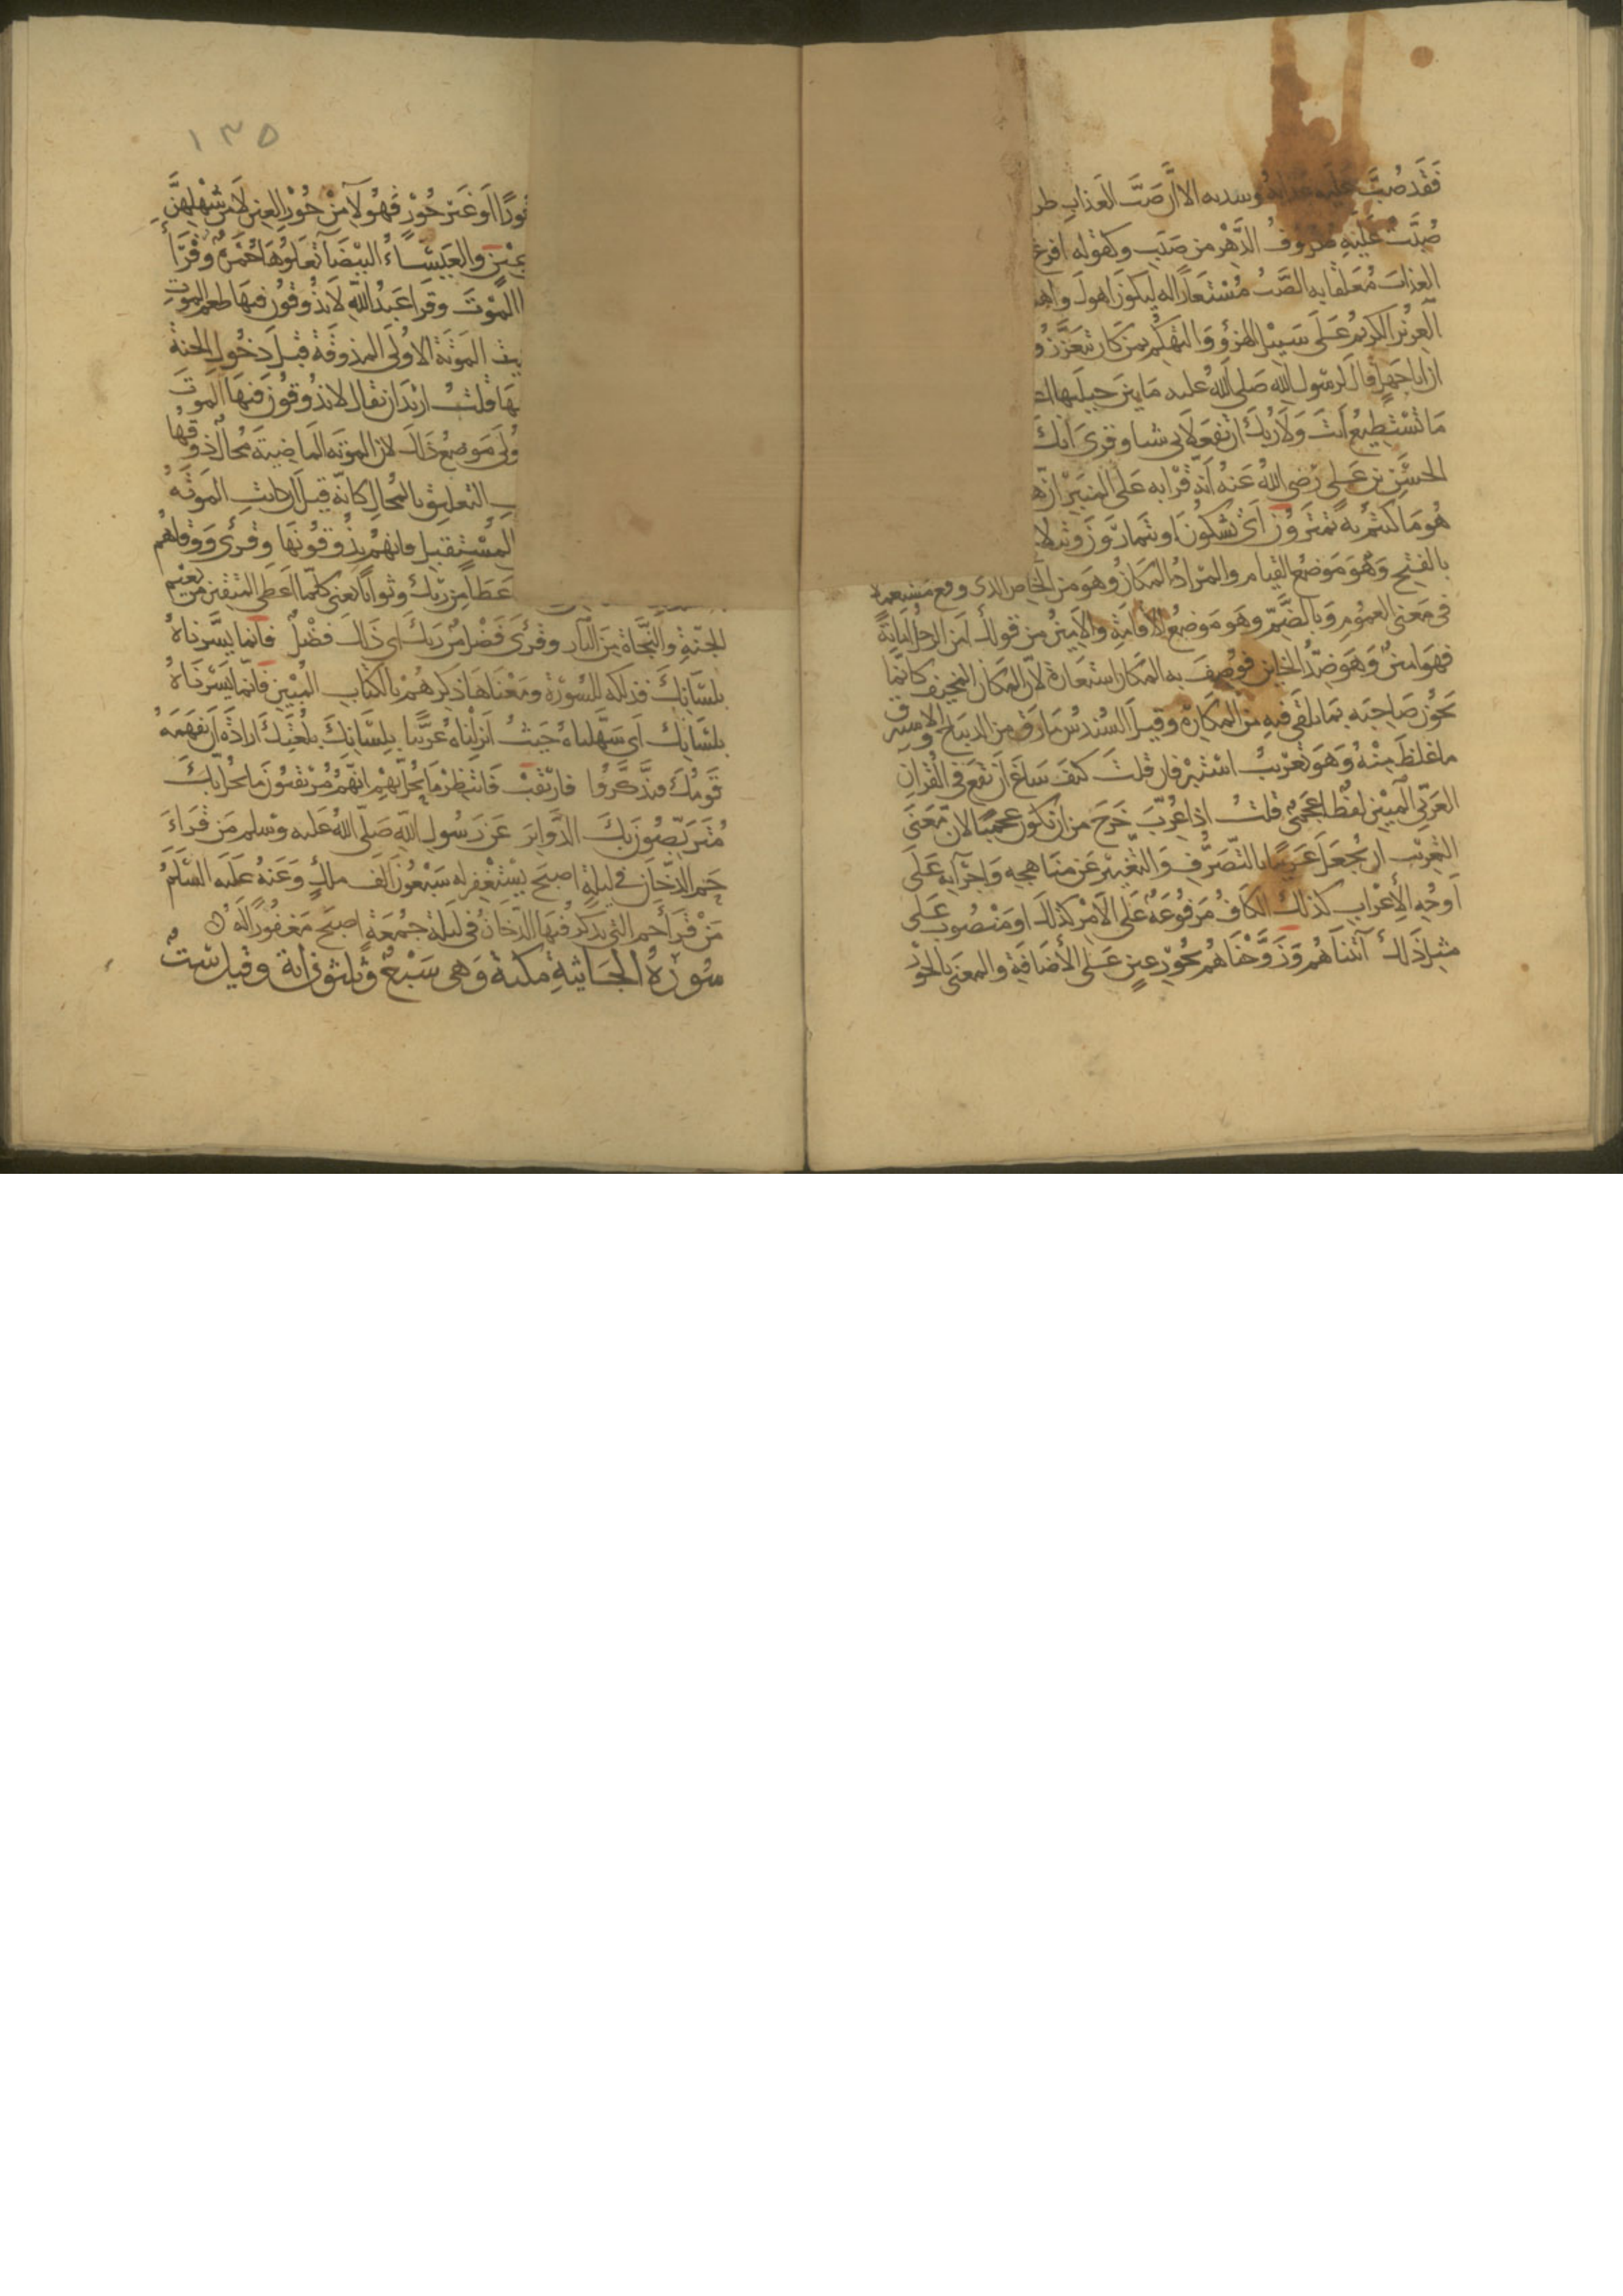 فَقَد صُبَّ عَلَيه عَذابُهُ وشدته الا ان صَبّ العَذابِ طر
صُبَّت عَلَيْهِ صُرُوْفُ الدَّهْرِ من صَبَبٍ وكقوله افرغ
العذابَ مُعَلقا به الصَّبُ مُسْتَعارًا له ليكوزَ اهولَ واهـ
العزيز الكريم عَلَى سَبيْل الهزؤ وَالتهَكُّم بمن كان يتعَزّزُ و
ان ابا جهلٍ قال لرسُول الله صَلى الله عليه مَا بين جبلَيها اعـ
مَا تَسْتَطيع انتَ وَلا رَبُّك ان تفعَلا بى شيا وقرى انك
الحسَن بن عَلى رضى الله عَنه أنّه قرأ به عَلى المنبَر ان هـ
هُو مَا كنتم به تمترون أى تشكوْنَ او تتمارَوْنَ وتتلا
بالفتح وَهو مَوضع القيام والمرادُ المكانُ وهو من الخاص الذى وقع مستعملا
فى مَعنى العمُوم وَبالضَّمّ وهو مَوضعُ الاقامَةِ والامينُ من قولك امن الرجل امانة
فهوَ امين وَهوَ ضِدُّ الخاين فوُصِفَ به المكان استعارة لان المكان المخيف كانما
يخون صَاحِبَه بمَا يلقَى فيهِ من المكاره وقيل السُندسُ مَا رق من الديباج والاستبرق
ما غلظ منه وَهوَ تعْريبُ استبر فان قلتَ كيف سَاغ ان تقع فى القرانِ
العَربّى المبين لفظ اعجمى قلت اذا عُرِّبَ خَرجَ من ان يكون عجميًا لان مَعنَى
التعريب ان يُجعَل عَربيًا بالتصَرُّفِ وَالتغيير عَن منهاجِه وَاجرآيه عَلَى
اوجُه الأعْراب كذلك الكاف مَرفوعَة عَلى الامر كذلك او مَنْصُوب عَلى
مثل ذلك اثبناهُم وَزَوَّجْناهُم بحُوْر عينٍ عَلى الأضافةِ والمعنى بالحوْر
١٣٥
حُورًا او غيْر حُوْرٍ فهؤلآ من حُوْرِ العِينِ لا من شهْلهِنّ
بعيْس والعَيْسَاءُ البيْضَآ تعلوُها حُمرةٌ وقرأ
الموْتَ وقرأ عَبدُ الله لا يذُوقونَ فيهَا طعمَ الموت
الموْتة الاولى المذوقة قبل دخولِ الجنة
قلت اريد ان يقال لا يذوقون فيها الموت
ولى مَوضع ذلك لان الموتة الماضيَة محال ذوقها
التعليق بالمحال كانه قيل ان كانت الموْتة
المسْتقبل فانهم يذُوقونهَا وقرى ووقاهم
عَطاءً من رّبك وثوابًا يعنى كلما اعطى المتقين من نعيْم
الجنّةِ والنّجاة مِنَ النّار وقُرئَ فضْلٌ مِن ربك اى ذلك فضْلٌ فانما يسَّرناهُ
بلسَانِك فذلكه للسُورةِ ومَعْناها ذكرهُمْ بالكتابِ المُبيْنِ فانّما يسَّرْناهُ
بلسَانِك اى سَهّلناهُ حَيثُ انزلناهُ عَربيًّا بلسَانِك بلُغتِكَ ارادةَ ان يفهمَهُ
قَومُك فيتذكّرُوا فارتقبْ فانتظِرْ ما يحُلّ بهم انهُمْ مُرْتقبُونَ ما يحُلّ بك
مُتَربِّصُونَ بك الدَّوايرَ عَن رَسُولِ اللهِ صَلى اللهُ عَليه وسَلم مَن قرَأ
حَم الدّخَان فى ليلةٍ اصبَح يسْتغفر له سَبْعُون الف ملكٍ وَعَنهُ عَليه السَّلَمُ
مَنْ قَرَأ حم التى يذكرُ فيْها الدّخانُ فى ليلةِ جُمُعَةٍ اصبَحَ مَغفُورًا لَهُ
سُورَة الجَاثيةِ مكية وَهى سَبْعٌ وثلثون اية وقيل ستٌ